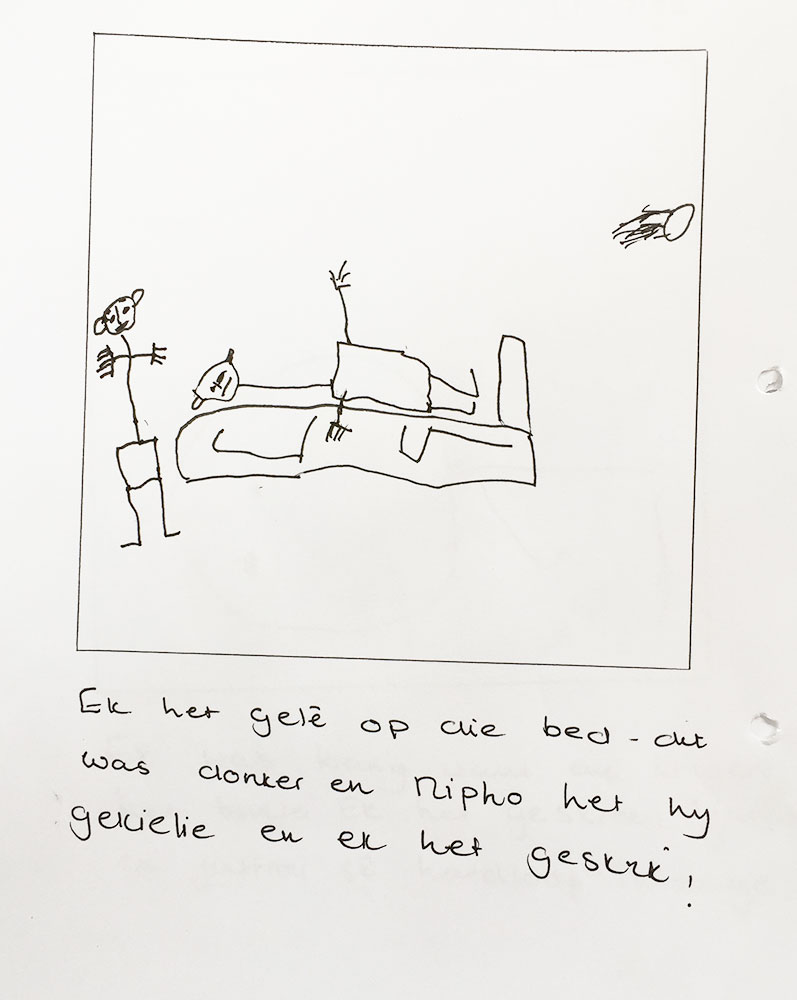 Ek het gelê op die bed - dit
was donker en Mpho het my
gekielie en ek het geskrik!